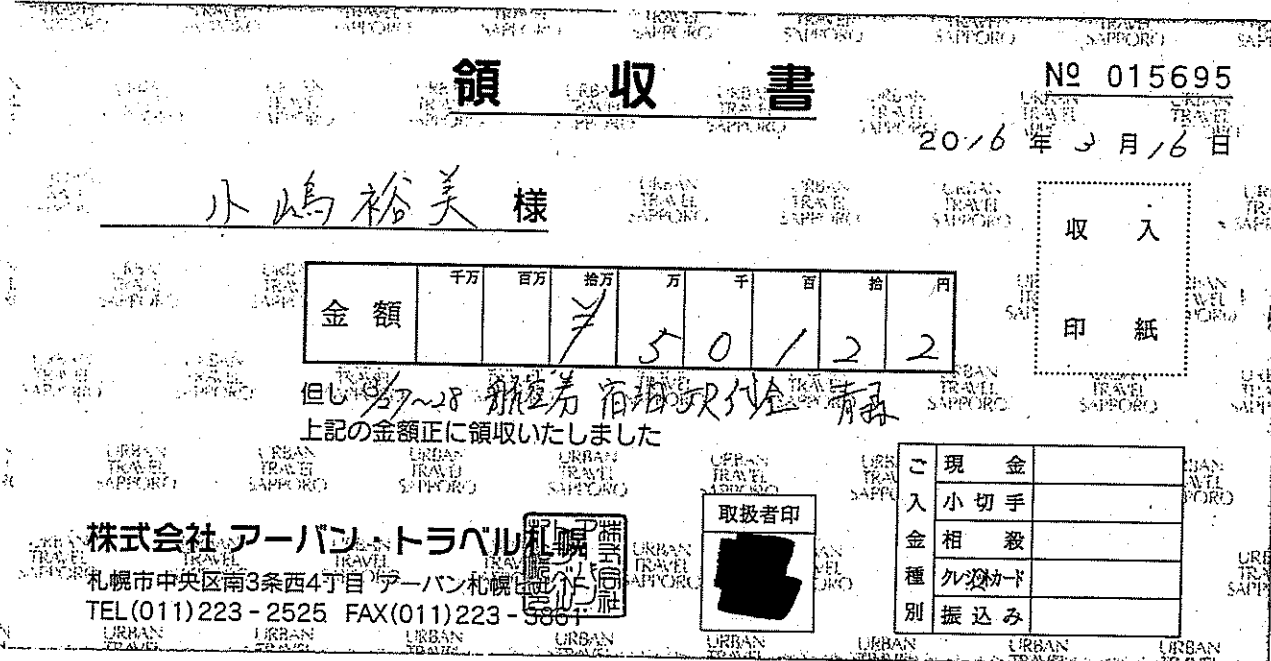 領 収 書
№ 015695
2016 年 3 月 16 日
小嶋裕美 様
収 入
印 紙
金 額 千万 百万 拾万 万 千 百 拾 円
¥ 5 0 1 2 2
但し 3/27~28 航空券 宿泊 代金 青森
上記の金額正に領収いたしました
ご入金種別
現 金
小 切 手
相 殺
クレジットカード
振 込 み
取扱者印
株式会社 アーバン・トラベル札幌
札幌市中央区南3条西4丁目 アーバン札幌ビル1F
TEL(011)223-2525 FAX(011)223-3861
URBAN TRAVEL SAPPORO